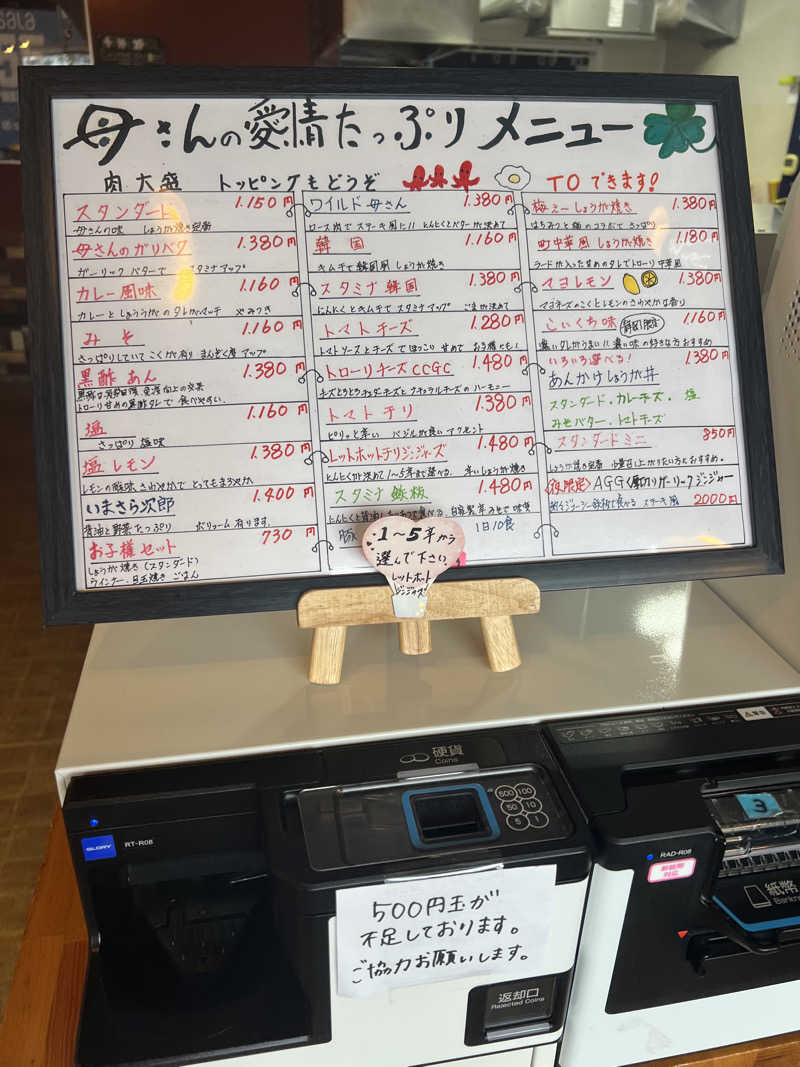 母さんの愛情たっぷりメニュー
肉大盛 トッピングもどうぞ TOできます!
スタンダード 1.150円
母さんの味 しょうが焼き定番
母さんのガリバタ 1.380円
ガーリックバターで スタミナアップ
カレー風味 1.160円
カレーとしょううがのタレがマッチ やみつき
みそ 1.160円
さっぷりしていてこくが有り まんぞく度アップ
黒酢あん 1.380円
トローリ甘めの黒酢タレで食べやすい。
塩 1.160円
さっぱり 塩味
塩レモン 1.380円
レモンの酸味さわやかで とってもまろやか
いまさら次郎 1.400円
醤油と野菜たっぷり ボリューム有ります。
お子様セット 730円
しょうが焼き(スタンダード)
ウインナー、目玉焼き ごはん
ワイルド母さん 1.380円
ロース肉でステーキ風に!! にんにくとバターが決めて
韓国 1.160円
キムチで韓国風しょうが焼き
スタミナ韓国 1.380円
にんにくとキムチでスタミナアップ ごまが決めて
トマトチーズ 1.280円
トマトソースとチーズでほっこり 甘めで お子様にも!
トローリチーズCCGC 1.480円
チーズとろとろチェダーチーズとナチュラルチーズのハーモニー
トマトテリ 1.380円
ピリッと辛い バジルが良いアクセント
レットホットテリジンジャーズ 1.480円
にんにくが決めて 1〜5辛まで選べる。 辛いしょうが焼き
スタミナ鉄板 1.480円
豚
1日10食
梅ぇーしょうが焼き 1.380円
はちみつと梅のコラボで さっぱり
町中華風しょうが焼き 1.180円
ラードが入った甘めのタレでトローリ中華風
マヨレモン 1.380円
マヨネーズのこくとレモンのさわやかな香り
こいくち味 静岡限定 1.160円
濃いタレがうまい!! 濃い味の好きな方おすすめ
いろいろ選べる! 1.380円
あんかけしょうが丼
スタンダード・カレーチーズ・塩
みそバター・トマトチーズ
スタンダードミニ 850円
しょうが焼き定番 小量召し上がりたい方におすすめ。
(夜限定) AGG(厚切りガーリックジンジャー
2000円
♥1〜5辛から
選んで下さい
レットホット
ジンジャーズ
硬貨
Coins
500 100
50 10
5 1
GLORY
RT-R08
500円玉が
不足しております。
ご協力お願いします。
返却口
Rejected Coins
RAD-R08
新紙幣
対応
3
紙幣